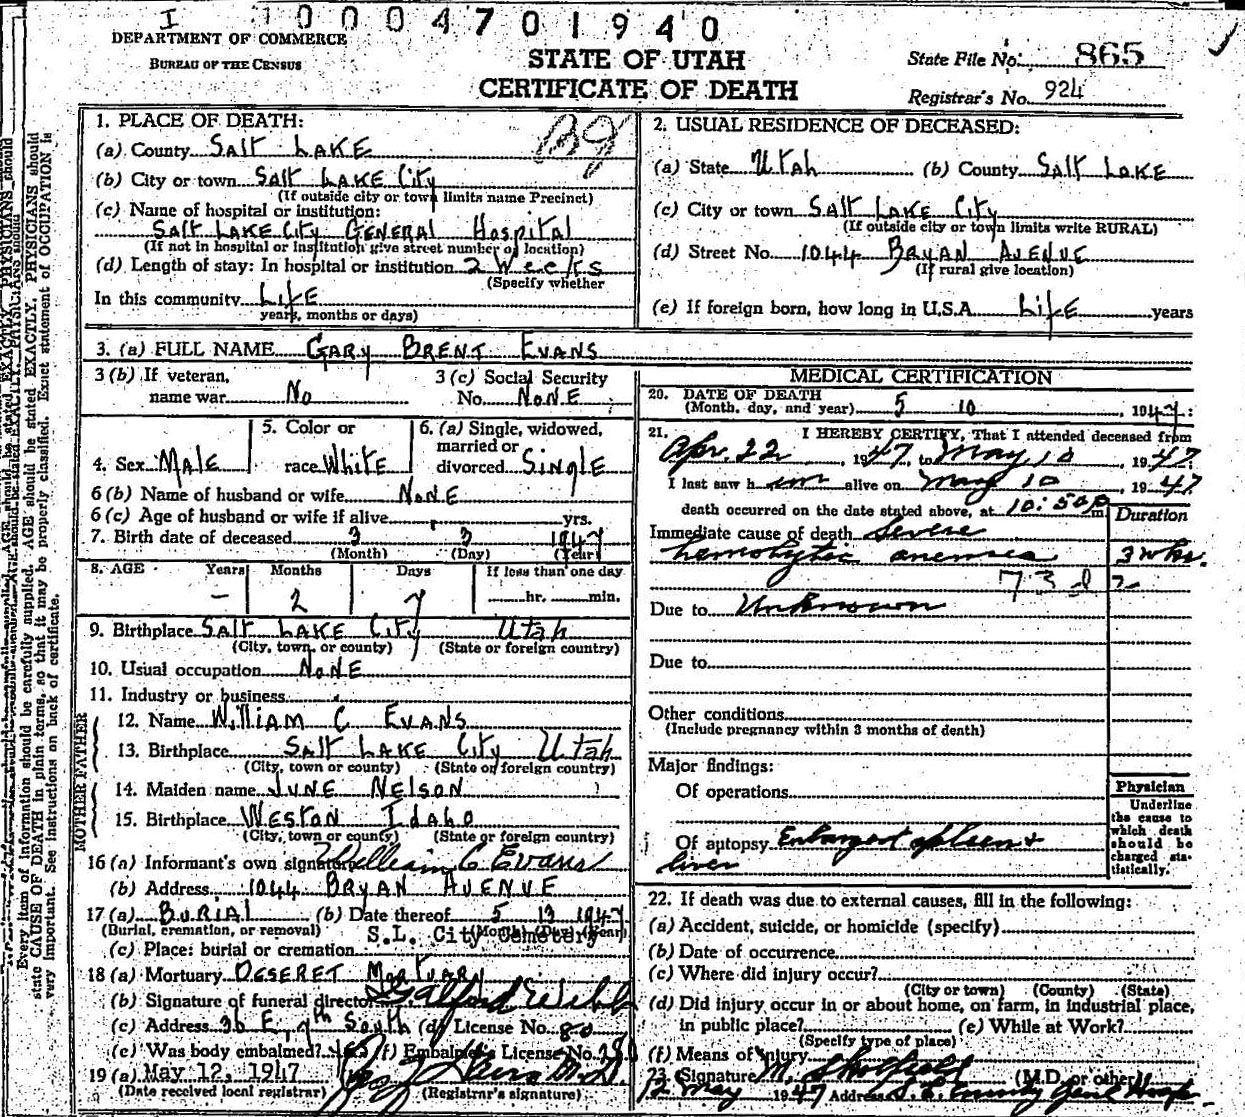 I 10004701940
DEPARTMENT OF COMMERCE
BUREAU OF THE CENSUS
STATE OF UTAH
CERTIFICATE OF DEATH
State File No. 865
Registrar's No. 924
1. PLACE OF DEATH:
(a) County SALT LAKE
(b) City or town SALT LAKE CITY
(If outside city or town limits name Precinct)
(c) Name of hospital or institution:
SALT LAKE CITY GENERAL HOSPITAL
(If not in hospital or institution give street number or location)
(d) Length of stay: In hospital or institution 2 Weeks
(Specify whether
In this community LIFE
years, months or days)
2. USUAL RESIDENCE OF DECEASED:
(a) State Utah (b) County SALT LAKE
(c) City or town SALT LAKE CITY
(If outside city or town limits write RURAL)
(d) Street No. 1044 BRYAN AVENUE
(If rural give location)
(e) If foreign born, how long in U.S.A. LIFE years
3. (a) FULL NAME GARY BRENT EVANS
3 (b) If veteran,
name war No
3 (c) Social Security
No. NONE
4. Sex MALE
5. Color or
race White
6. (a) Single, widowed,
married or
divorced SINGLE
6 (b) Name of husband or wife NONE
6 (c) Age of husband or wife if alive yrs.
7. Birth date of deceased 3 3 1947
(Month) (Day) (Year)
8. AGE Years Months Days If less than one day
– 2 7 hr. min.
9. Birthplace SALT LAKE CITY Utah
(City, town, or county) (State or foreign country)
10. Usual occupation NONE
11. Industry or business
FATHER
12. Name WILLIAM C EVANS
13. Birthplace SALT LAKE CITY Utah
(City, town or county) (State or foreign country)
MOTHER
14. Maiden name JUNE NELSON
15. Birthplace WESTON IDAHO
(City, town or county) (State or foreign country)
16 (a) Informant's own signature William C Evans
(b) Address 1044 BRYAN AVENUE
17 (a) BURIAL (b) Date thereof 5 13 1947
(Burial, cremation, or removal) (Month) (Day) (Year)
(c) Place: burial or cremation S.L. City Cemetery
18 (a) Mortuary DESERET MORTUARY
(b) Signature of funeral director
(c) Address 36 E, 7th South (d) License No. 80
(e) Was body embalmed? Yes (f) Embalmer's License No.
19 (a) May 12, 1947
(Date received local registrar) (Registrar's signature)
MEDICAL CERTIFICATION
20. DATE OF DEATH
(Month, day, and year) 5 10, 1947
21. I HEREBY CERTIFY, That I attended deceased from
Apr. 22, 1947, to May 10, 1947
I last saw him alive on May 10 1947
death occurred on the date stated above, at 10:50 p m.
Duration
Immediate cause of death Severe
hemolytic anemia 3 wks.
73d
Due to Unknown
Due to
Other conditions
(Include pregnancy within 3 months of death)
Major findings:
Of operations
Of autopsy Enlarged spleen +
liver
Physician
Underline
the cause to
which death
should be
charged sta-
tistically.
22. If death was due to external causes, fill in the following:
(a) Accident, suicide, or homicide (specify)
(b) Date of occurrence
(c) Where did injury occur?
(City or town) (County) (State)
(d) Did injury occur in or about home, on farm, in industrial place,
in public place? (e) While at Work?
(Specify type of place)
(f) Means of injury
23. Signature (M.D. or other)
12 May 1947 Address S. L. County Genl Hosp.
Every item of information should be carefully supplied. AGE should be stated EXACTLY. PHYSICIANS should
state CAUSE OF DEATH in plain terms, so that it may be properly classified. Exact statement of OCCUPATION is
very important. See instructions on back of certificate.